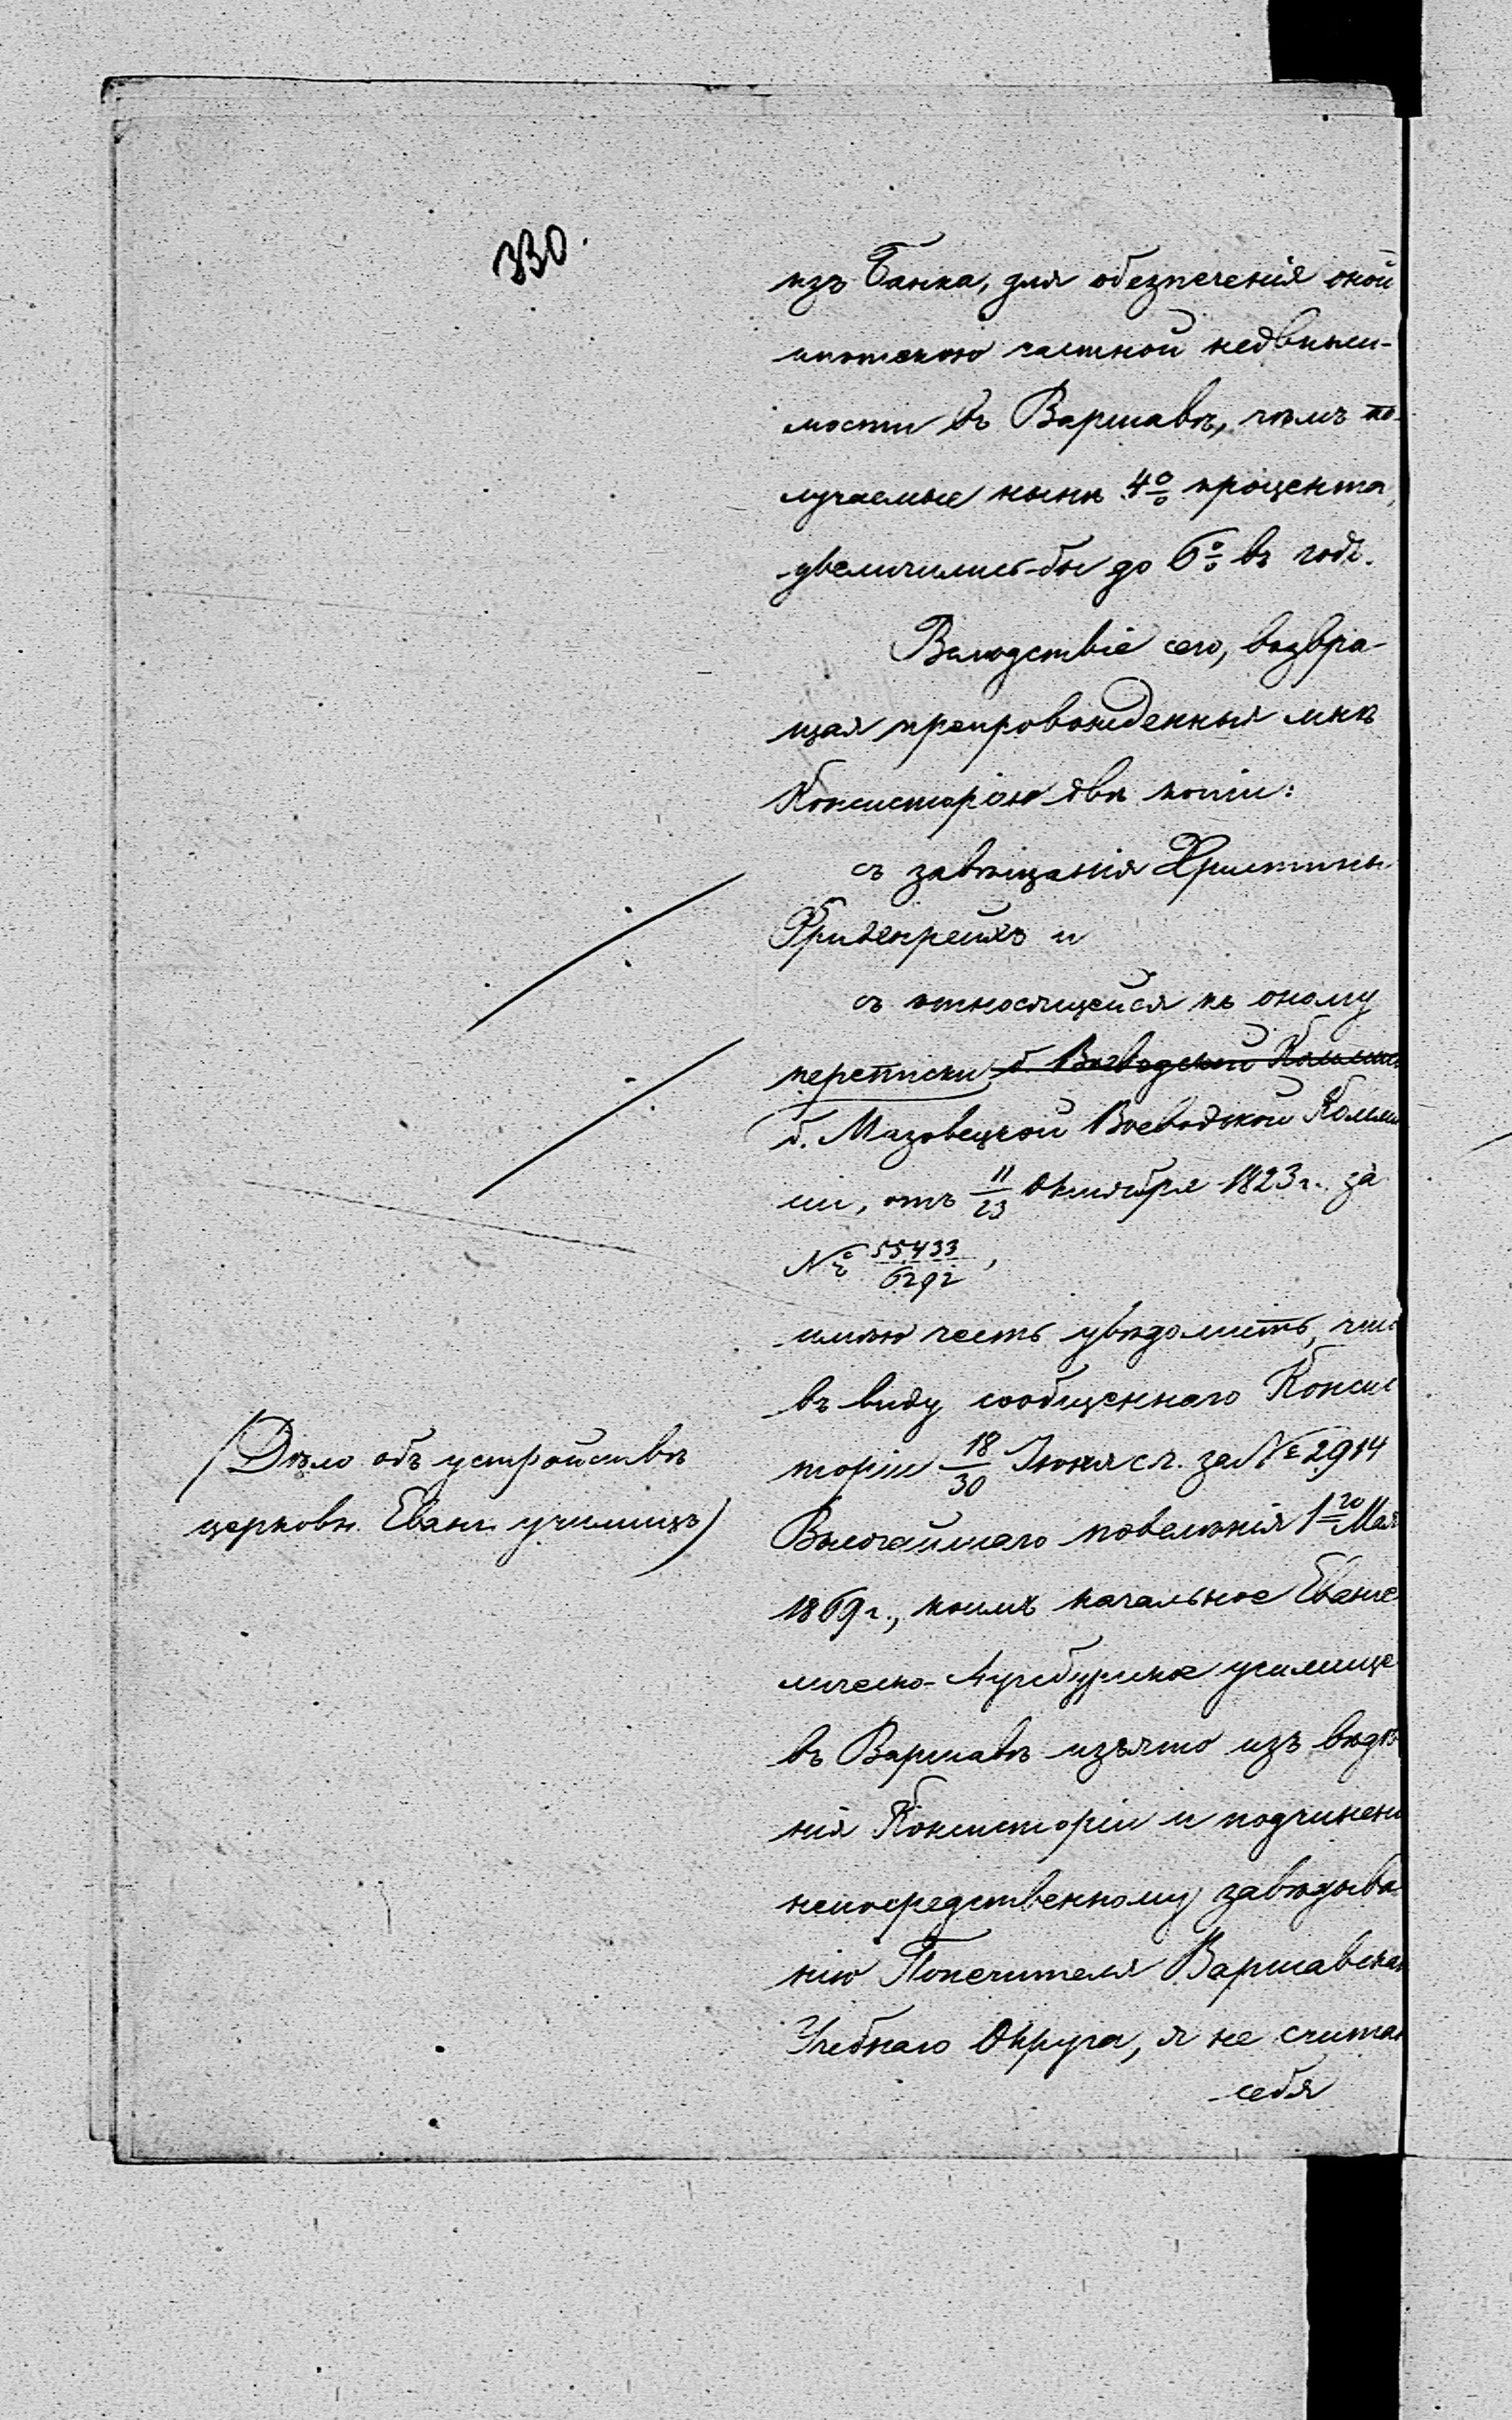 330.
изъ Банка, для обезпеченія оной
ипотекою частной недвижи-
мости въ Варшавѣ, чѣмъ по-
лучаемые нынѣ 4% процента,
увеличились-бы до 6% въ годъ.
Вслѣдствіе сего, возвра-
щая препровожденныя мнѣ
Консисторіею двѣ копіи:
съ завѣщанія Христины
Фриденрейхъ и
съ относящейся къ оному
переписки, б. Воеводской Коммис
б. Мазовецкой Воеводской Комми
сіи, отъ 11/23 Октября 1823 г. за
№ 55433/6292,
имѣю честь увѣдомить, что
въ виду сообщеннаго Консис
торіи 18/30 Іюня с.г. за № 2914
Высочайшаго повелѣнія 1го Мая
1869 г., коимъ начальное Еванге
лическо-Аугсбургское училище
въ Варшавѣ изъято изъ вѣдѣ
нія Консисторіи и подчинено
непосредственному завѣдыва
нію Попечителя Варшавскаго
Учебнаго Округа, я не считаю
себя
(Дѣло объ устройствѣ
церковн. Еванг. училищъ)